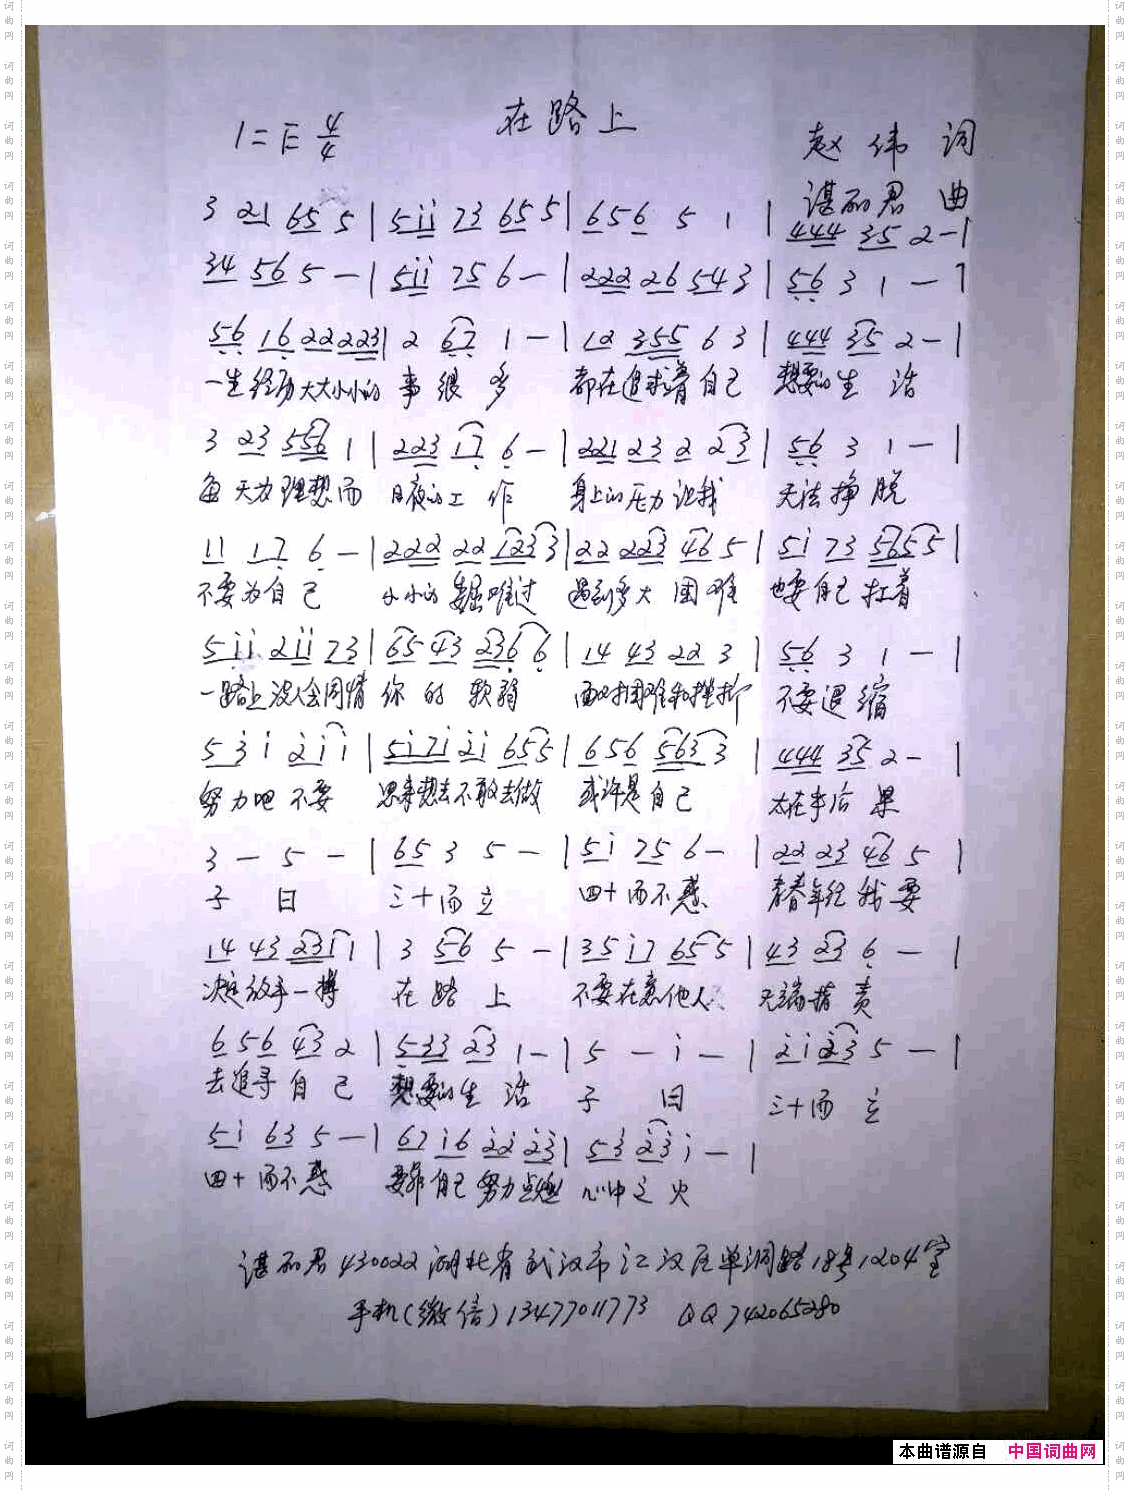 在路上
1=E 4/4
赵伟 词
谌丽君 曲
3 21 65 5 | 5ii 73 65 5 | 656 5 1 | 444 35 2 - |
34 56 5 - | 5ii 75 6 - | 222 26 54 3 | 56 3 1 - |
56 16 22 223 | 2 67 1 - | 12 355 6 3 | 444 35 2 - |
一生经历大大小小的 事 很 多 都在追求着自己 想要的生 活
3 23 556 1 | 223 17 6 - | 221 23 2 23 | 56 3 1 - |
每 天为 理想而 日夜的工 作 身上的压力让我 无法挣脱
11 17 6 - | 222 22 1233 | 22 223 46 5 | 5i 73 5655 |
不要为自己 小小的委屈难过 遇到多大 困 难 也要自己扛着
5ii 2ii 73 | 65 43 236 6 | 14 43 22 3 | 56 3 1 - |
一路上没人会同情 你 的 软弱 面对困难和挫折 不要退缩
5 3 i 2i i | 5i7i 2i 655 | 656 563 3 | 444 35 2 - |
努力吧 不要 思来想去不敢去做 或许是自己 太在乎后 果
3 - 5 - | 65 3 5 - | 5i 75 6 - | 22 23 46 5 |
子 曰 三十而立 四十而不惑 青春年轻 我 要
14 43 23i 1 | 3 56 5 - | 35 i7 65 5 | 43 23 6 - |
决定放手一搏 在 路 上 不要在意他人 无端指 责
656 43 2 | 533 23 1 - | 5 - i - | 2i 23 5 - |
去追寻 自 己 想要的生 活 子 曰 三十而 立
5i 63 5 - | 67 i6 22 23 | 53 23 i - |
四十而不惑 要靠自己 努力点燃 心中之 火
谌丽君 430022 湖北省武汉市江汉区单洞路18号1204室
手机(微信)13477011773 QQ 742065280
本曲谱源自 中国词曲网